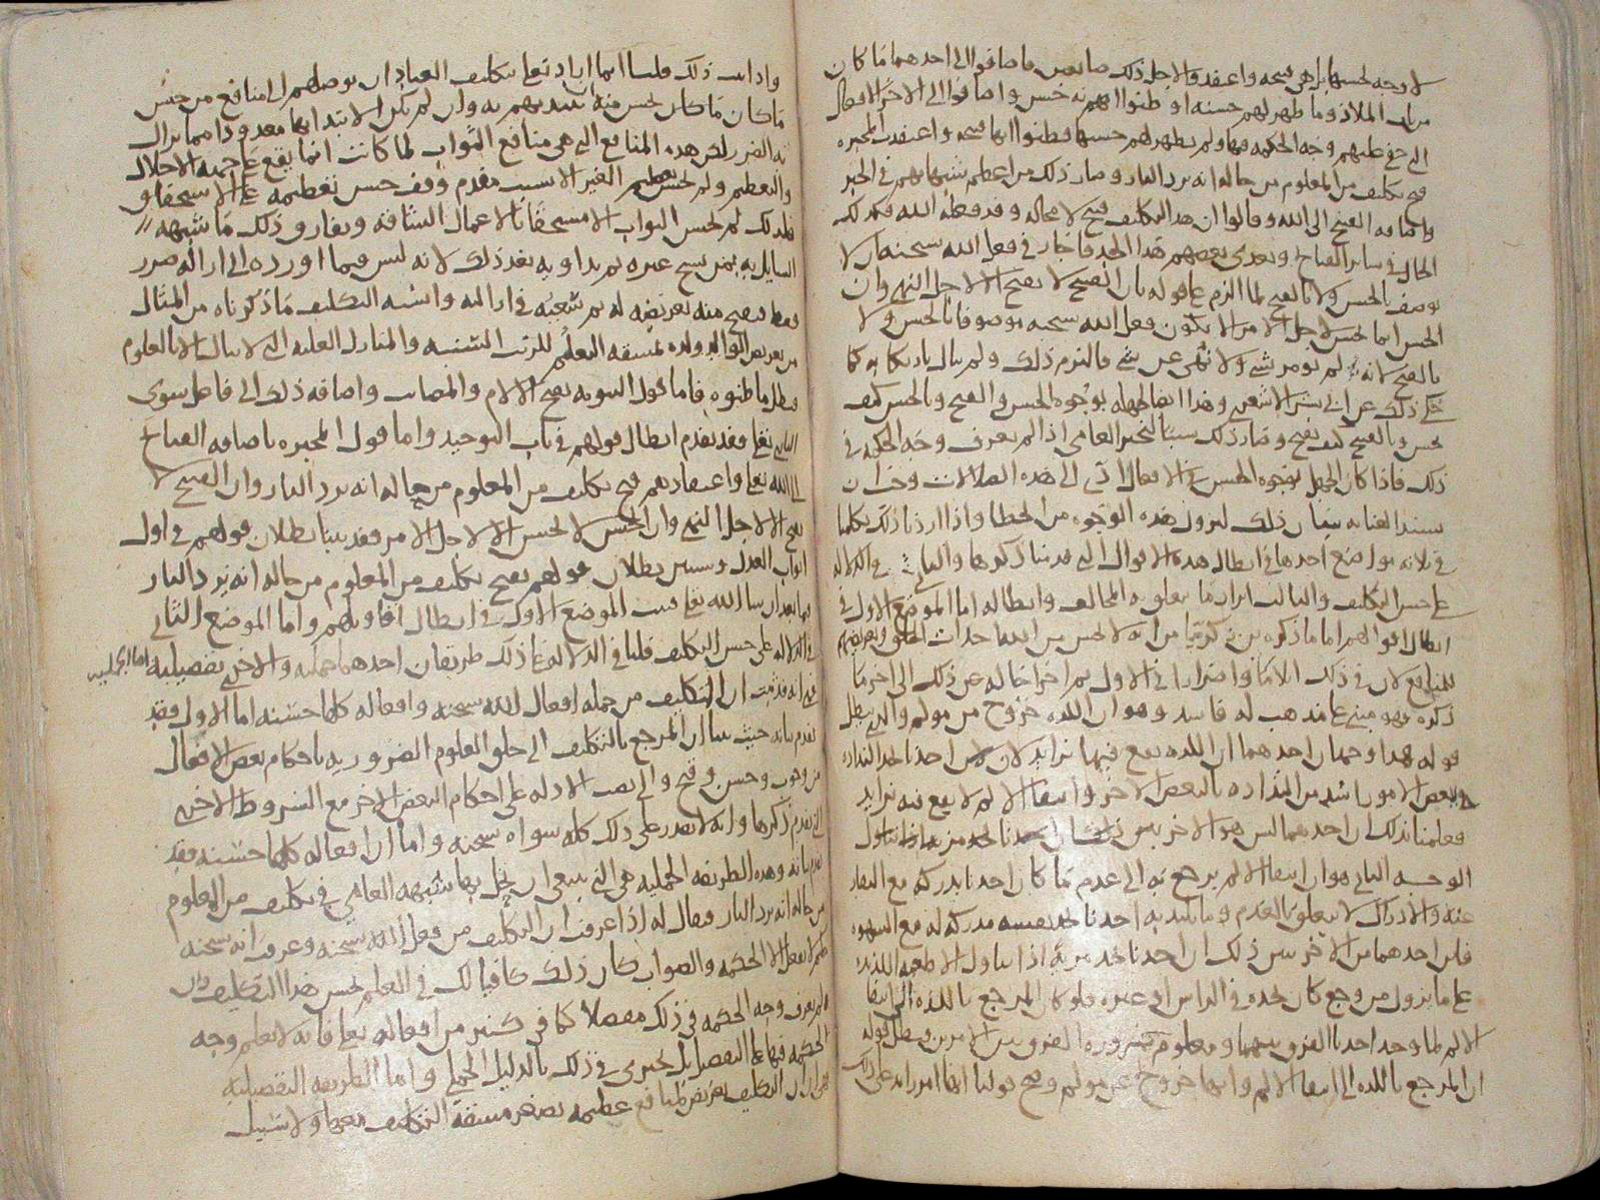 لا وجه لحسنها بل هي قبيحة واعتقدوا لاجل ذلك صانعين فاضافوا الى احدهما ما كان
من باب الملاذ وما ظهر لهم حسنه او ظنوا انه حسن واضافوا الى الاخر الافعال
التي خفي عليهم وجه الحكمة فيها ولم يظهر لهم حسنها فظنوا انها قبيحة واعتقدت المجبره
قبح تكليف من المعلوم من حاله انه يرد النار وصار ذلك من اعظم شبهاتهم في الجبر
واضافه القبيح الى الله وقالوا ان هذا التكليف قبيح لا محاله وقد فعله الله فكذلك
الحال في ساير القبايح وتعدى بعضهم هذا الحد فاجاز في فعل الله سبحنه ان لا
يوصف بالحسن ولا بالقبح لما الزم على قوله بان القبيح لا يقبح الا لاجل النهي وان
الحسن انما يحسن لاجل الامر الا يكون فعل الله سبحنه موصوفا بالحسن ولا
بالقبح لانه لم يومر بشي ولا نهي عن شي فالتزم ذلك ولم يبال بارتكابه كما
حكي ذلك عن ابي بشر الاشعري وهذا ايضا لجهله بوجوه الحسن والقبح وبالحسن كيف
يحسن وبالقبيح كيف يقبح وصار ذلك سببا لتحير العامي اذا لم يعرف وجه الحكمة في
ذلك فاذا كان الجهل بوجوه الحسن في الافعال ادى الى هذه الضلالات وجب ان
تشتد العنايه ببيان ذلك لتزول هذه الوجوه من الخطا واذا اردنا ذلك تكلمنا
في ثلاثه مواضع احدها في ابطال هذه الاقوال التي قدمنا ذكرها والثاني في الدلاله
على حسن التكليف والثالث ايراد ما يتعلق به المخالف وابطاله اما الموضع الاول في
ابطال اقوالهم اما ما ذكره ابن زكريا من انه لا يحسن من الله احداث الخلق وتعريضهم
للمنافع لان في ذلك الاما واضرارا في الاول ثم اخراجا له عن ذلك الى اخر ما
ذكره فهو مبني على مذهب له فاسد وهو ان اللذه خروج من مولم والذي يبطل
قوله هذا وجهان احدهما ان اللذه يقع فيها تزايد لان احدنا يجد التذاذه
ببعض الامور اشد من التذاذه بالبعض الاخر وانتفا الالم لا يقع فيه تزايد
فعلمنا بذلك ان احدهما ليس هو الاخر
الوجه الثاني هو ان انتفا الالم يرجع به الى عدم ما كان احدنا يدركه مع النفار
عنه والادراك لا يتعلق بالعدم وما يلتذ به احدنا يجد نفسه مدركه له مع الشهوه
فاين احدهما من الاخر يبين ذلك ان احدنا يجد مزيه اذا تناول الاطعمه اللذيذه
على ما يزول من وجع كان يجده في الراس او غيره فلو كان المرجع باللذه الى انتفا
الالم لما وجد احدنا الفرق بينهما ومعلوم ضروره الفرق بين الامرين فبطل قوله
ان المرجع باللذه الى انتفا الالم وانها خروج عن مولم وصح قولنا انها امر زايد على ذلك
واذا ثبت ذلك قلنا انما اراد تعلى بتكليف العباد ان يوصلهم الى منافع من جنس
ما كان يحسن منه
والتعظيم ولم يحسن تعظيم الغير الا بسبب مقدم وقف حسن تعظيمه على الاستحقاق
فلذلك لم يحسن الثواب الا مستحقا بالاعمال الشاقه وفارق ذلك ما شبهه
السايل به بمن يشج غيره ثم يداويه بعد ذلك لانه ليس فيما اورده الا ازاله ضرر
فقط فيقبح منه تعريضه له ثم سعيه في ازالته واشبه التكليف ما ذكرناه من المثال
من تعريض الوالد ولده لمشقه التعلم للرتب السنيه والمنازل العليه التي لا تنال الا بالعلوم
فبطل ما ظنوه فاما قول الثنويه بقبح الالام والمصايب واضافه ذلك الى فاعل سوى
الباري تعلى فقد تقدم ابطال قولهم في باب التوحيد واما قول المجبره باضافه القبايح
الى الله تعلى واعتقادهم قبح تكليف من المعلوم من حاله انه يرد النار وان القبيح لا
يقبح الا لاجل النهي وان الحسن لا يحسن الا لاجل الامر فقد بينا بطلان قولهم في اول
ابواب العدل وسنبين بطلان قولهم بقبح تكليف من المعلوم من حاله انه يرد النار
فيما بعد ان شا الله تعلى فثبت الموضع الاول في ابطال اقاويلهم واما الموضع الثاني
في الدلاله على حسن التكليف فلنا في الدلاله على ذلك طريقان احدهما جمليه والاخرى تفصيليه اما الجمليه
فهي انه قد ثبت ان التكليف من جمله افعال الله سبحنه وافعاله كلها حسنه اما الاول فقد
تقدم بيانه حيث بينا ان المرجع بالتكليف الى خلق العلوم الضروريه باحكام بعض الافعال
من وجوب وحسن وقبح والى نصب الادله على احكام البعض الاخر مع الشروط الاخرى
التي تقدم ذكرها وانه لا يقدر على ذلك كله سواه سبحنه واما ان افعاله كلها حسنه فقد
تقدم بيانه وهذه الطريقه الجمليه هي التي ينبغي ان يحل بها شبهه العامي في تكليف من المعلوم
من حاله انه يرد النار فيقال له اذا عرفت ان التكليف من فعل الله سبحنه وعرفت انه سبحنه
حكيم لا يفعل الا الحكمه والصواب كان ذلك كافيا لك في العلم بحسن هذا التكليف وان
لم تعرف وجه الحكمه في ذلك مفصلا كما في كثير من افعاله تعلى فانه لا تعلم وجه
الحكمه فيها على التفصيل بل يجتزى في ذلك بالدليل الجملي واما الطريقه التفصيليه
فهي ان التكليف تعريض لمنافع عظيمه تصغر مشقه التكليف معها ولا سبيل